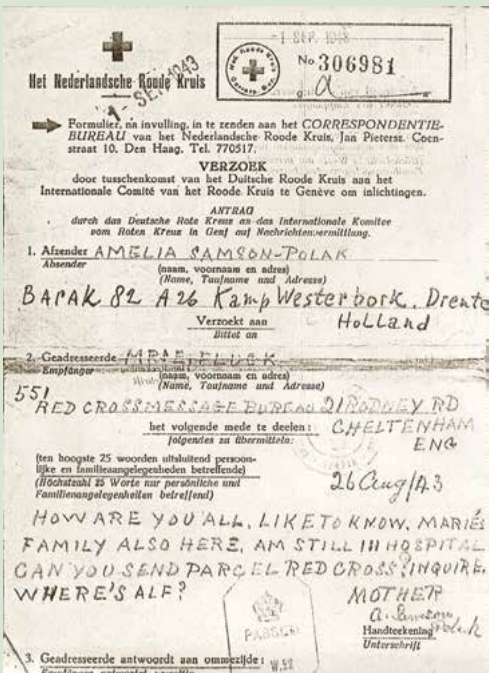 - 1 SEP. 1943
No 306981
a
Het Roode Kruis
Het Nederlandsche Roode Kruis
SEP 1943
Formulier, na invulling, in te zenden aan het CORRESPONDENTIE-
BUREAU van het Nederlandsche Roode Kruis, Jan Pietersz. Coen-
straat 10, Den Haag, Tel. 770517.
VERZOEK
door tusschenkomst van het Duitsche Roode Kruis aan het
Internationale Comité van het Roode Kruis te Genève om inlichtingen.
ANTRAG
durch das Deutsche Rote Kreuz an das Internationale Komitee
vom Roten Kreuz in Genf auf Nachrichtenvermittlung.
1. Afzender AMELIA SAMSON-POLAK
Absender
(naam, voornaam en adres)
(Name, Taufname und Adresse)
BARAK 82 A26 Kamp Westerbork. Drente
Holland
Verzoekt aan
Bittet an
2. Geadresseerde
Empfänger
(naam, voornaam en adres)
(Name, Taufname und Adresse)
551
RED CROSS MESSAGE BUREAU 21 RODNEY RD
CHELTENHAM
ENG
het volgende mede te deelen:
folgendes zu übermitteln:
(ten hoogste 25 woorden uitsluitend persoon-
lijke en familieaangelegenheden betreffende)
(Höchstzahl 25 Worte nur persönliche und
Familienangelegenheiten betreffend)
26 Aug/43
HOW ARE YOU ALL, LIKE TO KNOW, MARIES
FAMILY ALSO HERE, AM STILL IN HOSPITAL
CAN YOU SEND PARCEL RED CROSS? INQUIRE.
WHERE'S ALF?
MOTHER
Handteekening
Unterschrift
PASSED
W.52
3. Geadresseerde antwoordt aan ommezijde: